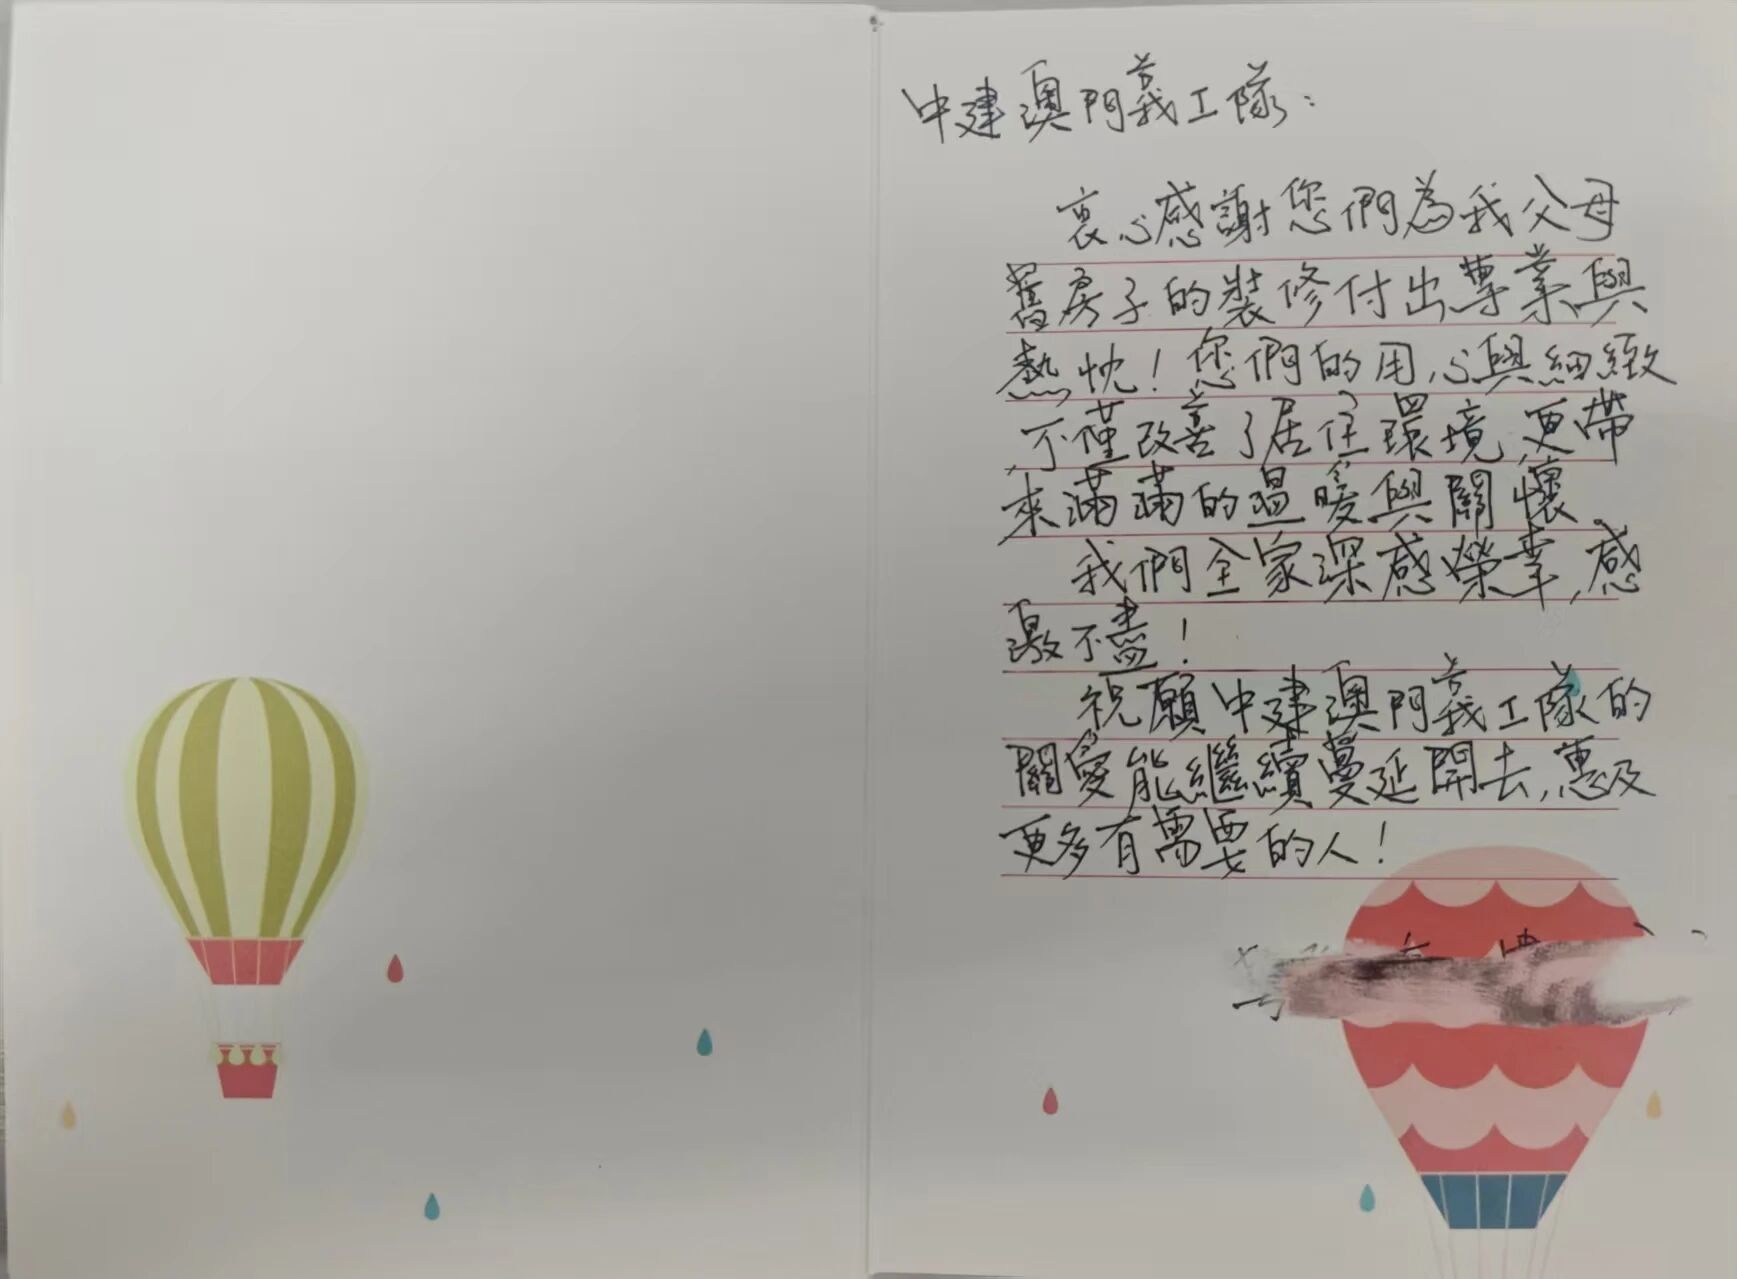 中建澳門義工隊：
衷心感謝您們為我父母
舊房子的裝修付出專業與
熱忱！您們的用心與細緻
,不僅改善了居住環境,更帶
來滿滿的溫暖與關懷.
我們全家深感榮幸,感
激不盡！
祝願中建澳門義工隊的
關愛能繼續蔓延開去,惠及
更多有需要的人！